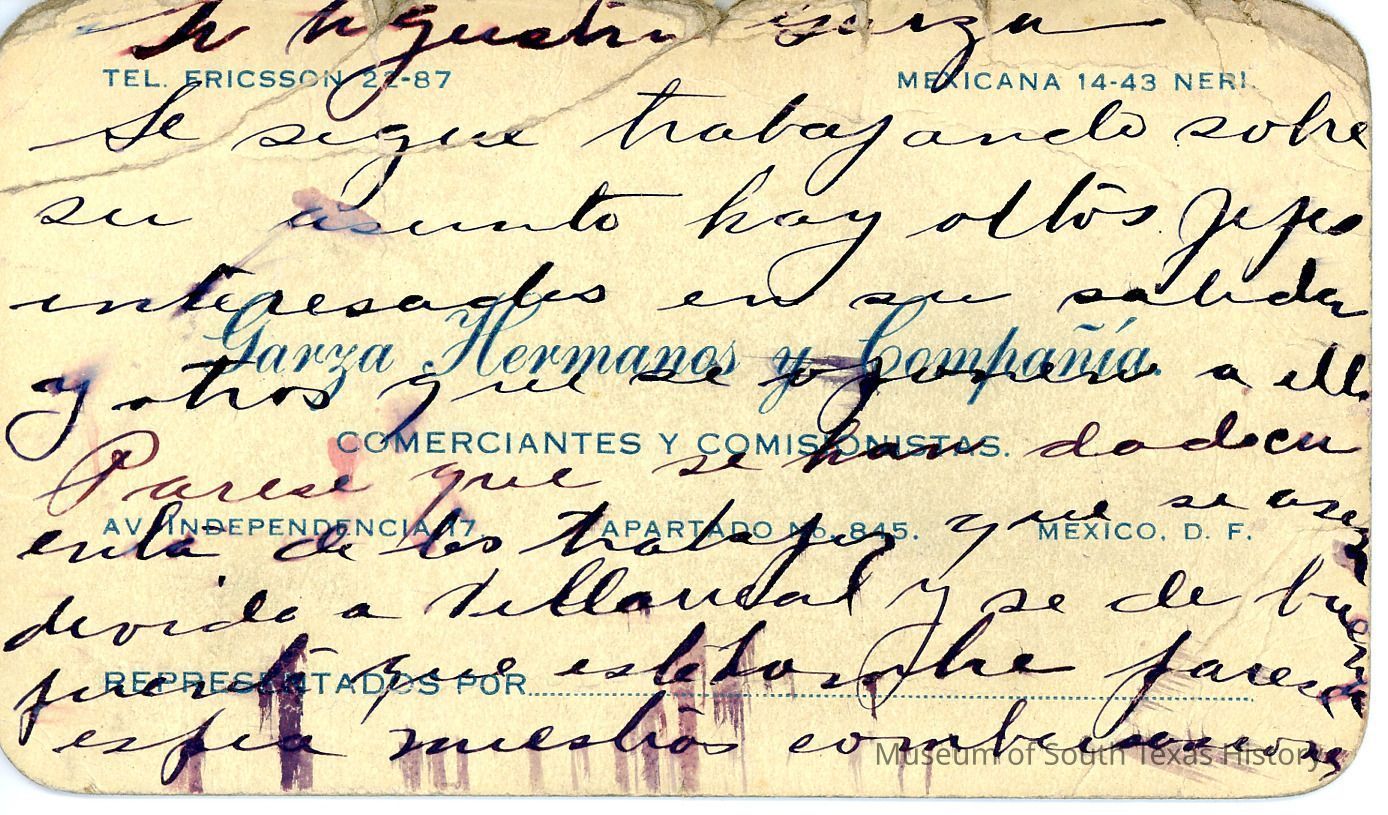 Sr Agustin Garza
TEL. ERICSSON 22-87 MEXICANA 14-43 NERI.
Se sigue trabajando sobre
su asunto hay altos jefes
interesados en su salida
Garza Hermanos y Compañía.
y otros que se oponen a ell
COMERCIANTES Y COMISIONISTAS.
Parese que se han dado cu
AV. INDEPENDENCIA 17. APARTADO No. 845. MEXICO, D. F.
enta de los trabajos y que se a
devido a Villarreal y se de buena
REPRESENTADOS POR
fuente que este hombre parese
espia nuestras
Museum of South Texas History